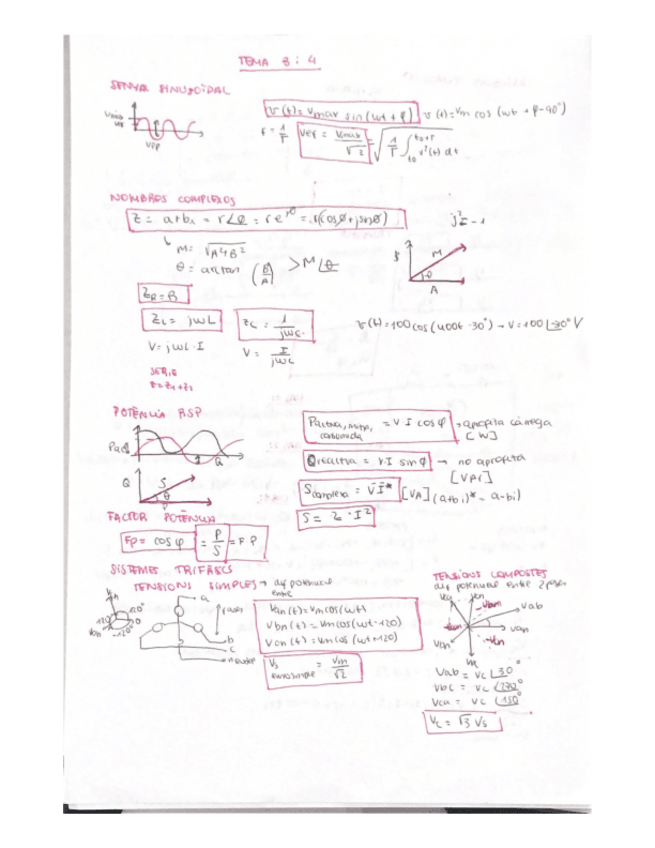 TEMA 3 i 4
SENYAL SINUSOÏDAL
v(t)= Vmax sin(ωt + φ) v(t)=Vm cos (ωt + φ-90°)
f = 1/T Vef = Vmax/√2 = √(1/T ∫ t0 t0+T v²(t) dt)
Vpp
NOMBRES COMPLEXOS
z = a+bi = r∠θ = r e^jθ = r(cosθ+jsinθ) j²=-1
M= √A²+B²
θ = arctan (B/A) > M∠θ
B M θ A
ZR=R
ZL = jωL ZC = 1/jωC v(t)=100cos(400t-30°) → V=100∠-30° V
V= jωL·I V = I/jωC
SÈRIE
Z=Z1+Z2
POTÈNCIA ASP
Pactiva, mitja, consumida = V I cos φ → aprofita càrrega [W]
Qreactiva = V·I sin φ → no aprofita [VAr]
Q S θ
Scomplexa = V̄Ī* [VA] (a+bi)* = a-bi
FACTOR POTÈNCIA
S = Z · I²
Fp = cos φ = P/S = FP
SISTEMES TRIFÀSICS
TENSIONS SIMPLES → dif potencial entre
Van(t)=Vmcos(ωt)
Vbn(t)= Vmcos(ωt-120)
Vcn(t)=Vmcos(ωt+120)
Vs = Vm/√2
a
b
c
neutre
TENSIONS COMPOSTES
dif potencial entre 2 fases
Vcn Vab
Van
Vbn
Vab = Vc ∠30°
Vbc = Vc ∠270°
Vca = Vc ∠150°
Vc = √3 Vs